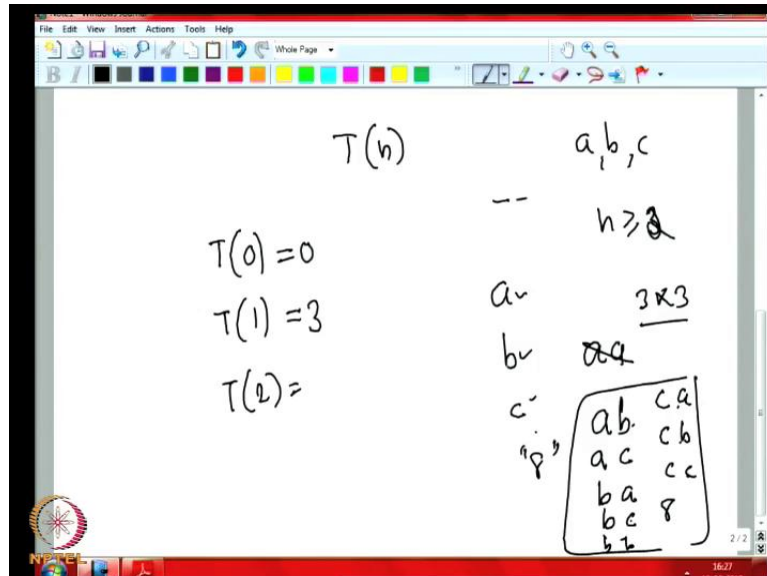 File Edit View Insert Actions Tools Help
Whole Page
B I
T(n)
a, b, c
--
n ≥
T(0) = 0
T(1) = 3
T(2) =
a
b
c
"8"
3 × 3
aa
ab
ac
ba
bc
bb
ca
cb
cc
8
2 / 2
NPTEL
16:27